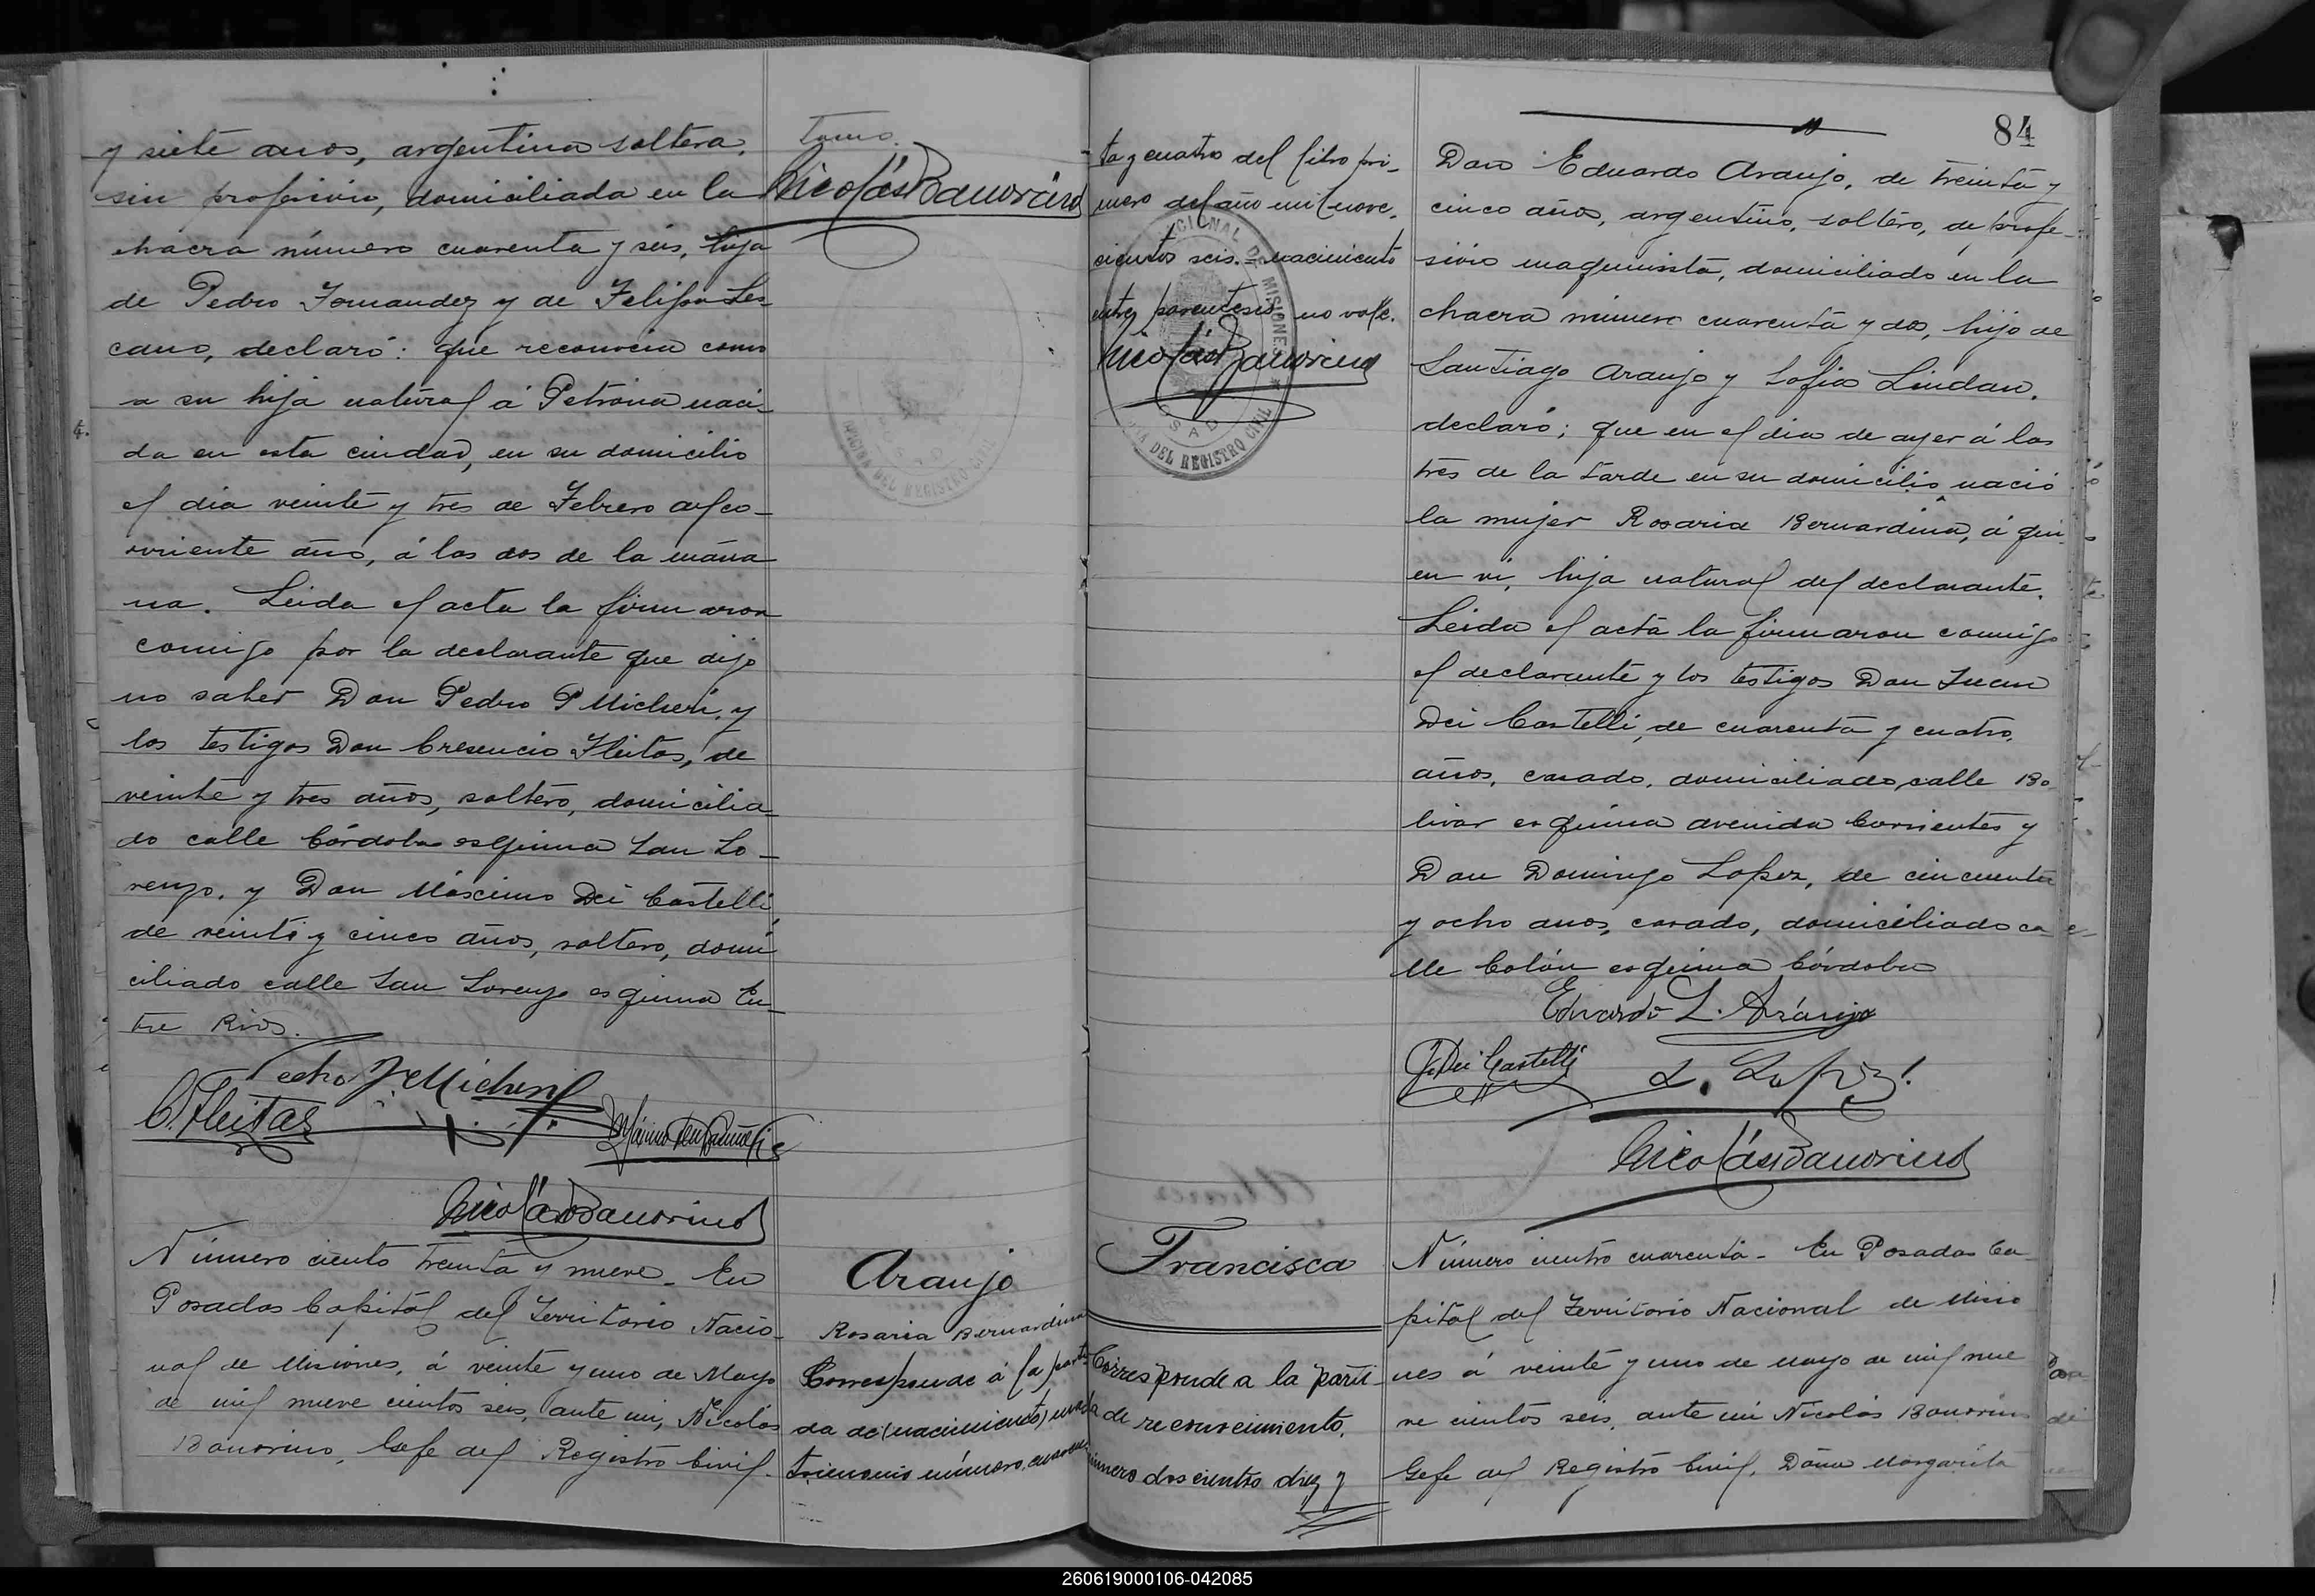 y siete años, argentina soltera,
sin profesion, domiciliada en la
chacra número cuarenta y seis, hija
de Pedro Fernandez y de Felipa Les-
cano, declaró: que reconocia como
a su hija natural á Petrona naci-
da en esta ciudad, en su domicilio
el dia veinte y tres de Febrero del co-
rriente año, á las dos de la maña
na. Leida el acta la firmaron
comigo por la declarante que dijo
no saber Don Pedro P Micheri, y
los testigos Don Cresencio Fleitas, de
veinte y tres años, soltero, domicilia-
do calle Córdoba esquina San Lo-
renzo, y Don Máscimo Dei Castelli
de veinte y cinco años, soltero, domi
ciliado calle San Lorenzo esquina En-
tre Rios.
Pedro P Micheri
C. Fleitas
Nicolás Bonorino
Número ciento treinta y nueve - En
Posadas Capital del Territorio Nacio-
nal de Misiones, á veinte y uno de Mayo
de mil nueve cientos seis, ante mi, Nicolás
Bonorino, Gefe del Registro Civil.
tomo.
Nicolás Bonorino
OFICINA DEL REGISTRO CIVIL
Araujo
Rosaria Bernardina
Corresponde á la parti
da de (nacimiento) ma
trimonio número cuaren
ta y cuatro del libro pri-
mero del año mil nove-
cientos seis.- nacimiento
entre parentesis no vale.
Nicolás Bonorino
DE MISIONES
DEL REGISTRO CIVIL
Francisca
Corresponde a la parti-
da de reconocimiento,
número doscientos diez y
84
Don Eduardo Araujo, de treinta y
cinco años, argentino, soltero, de profe-
sión maquinista, domiciliado en la
chacra número cuarenta y dos, hijo de
Santiago Araujo y Sofia Lindan,
declaró; que en el dia de ayer á las
tres de la tarde en su domicilio nació
la mujer Rosaria Bernardina, á qui-
en vi, hija natural del declarante.
Leida el acta la firmaron comigo
el declarante y los testigos Don Juan
Dei Castelli, de cuarenta y cuatro,
años, casado, domiciliado calle Bo
livar esquina avenida Corrientes y
Don Domingo Lopez, de cincuenta
y ocho anos, casado, domiciliado ca-
lle Colón esquina Córdoba
Eduardo L. Aráujo
J. Dei Castelli
D. Lopez
Nicolás Bonorino
Número ciento cuarenta - En Posadas Ca
pital del Territorio Nacional de Misio
nes á veinte y uno de mayo de mil nue
ve cientos seis, ante mi Nicolás Bonorino
Gefe del Registro Civil, Doña Margarita
260619000106-042085